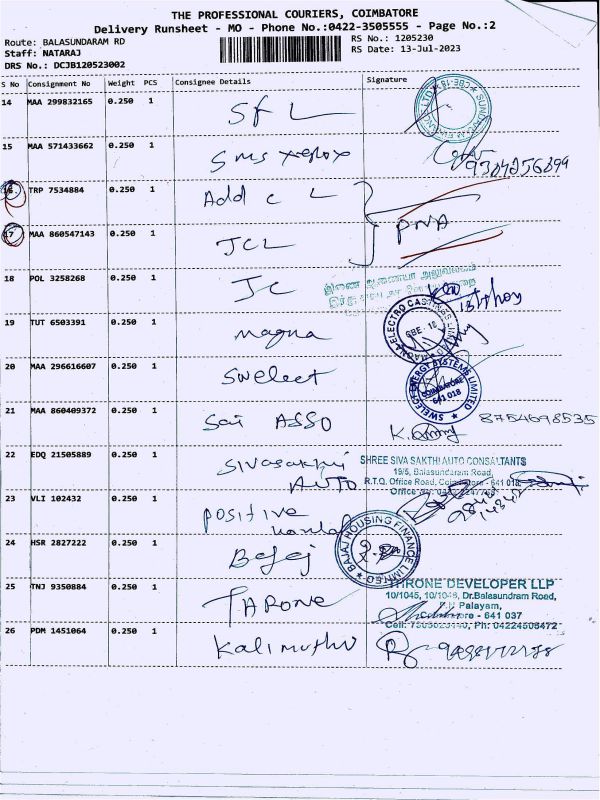 THE PROFESSIONAL COURIERS, COIMBATORE
Delivery Runsheet - MO - Phone No.:0422-3505555 - Page No.:2
Route: BALASUNDARAM RD
RS No.: 1205230
Staff: NATARAJ
RS Date: 13-Jul-2023
DRS No.: DCJB120523002
S No Consignment No Weight PCS Consignee Details Signature
14 MAA 299832165 0.250 1 SF L
15 MAA 571433662 0.250 1 Sms xerox
16 TRP 7534884 0.250 1 Add c L
PNA
17 MAA 860547143 0.250 1 JCL
18 POL 3258268 0.250 1 JC
19 TUT 6503391 0.250 1 magna
20 MAA 296616607 0.250 1 Swelect
SWELECT ENERGY SYSTEMS LIMITED
COIMBATORE
641 018
21 MAA 860409372 0.250 1 Sai ASSO
8754698535
22 EDQ 21505889 0.250 1 Sivasakthi
AUTO
SHREE SIVA SAKTHI AUTO CONSULTANTS
19/5, Balasundaram Road,
R.T.Q. Office Road, Coimbatore - 641 018
23 VLI 102432 0.250 1 Positive
24 HSR 2827222 0.250 1 Bajaj
BAJAJ HOUSING FINANCE LIMITED
25 TNJ 9350884 0.250 1 THRONE
THRONE DEVELOPER LLP
10/1045, 10/1046, Dr.Balasundram Road,
P.N Palayam,
Coimbatore - 641 037
Ph: 04224506472
26 PDM 1451064 0.250 1 Kalimuthu